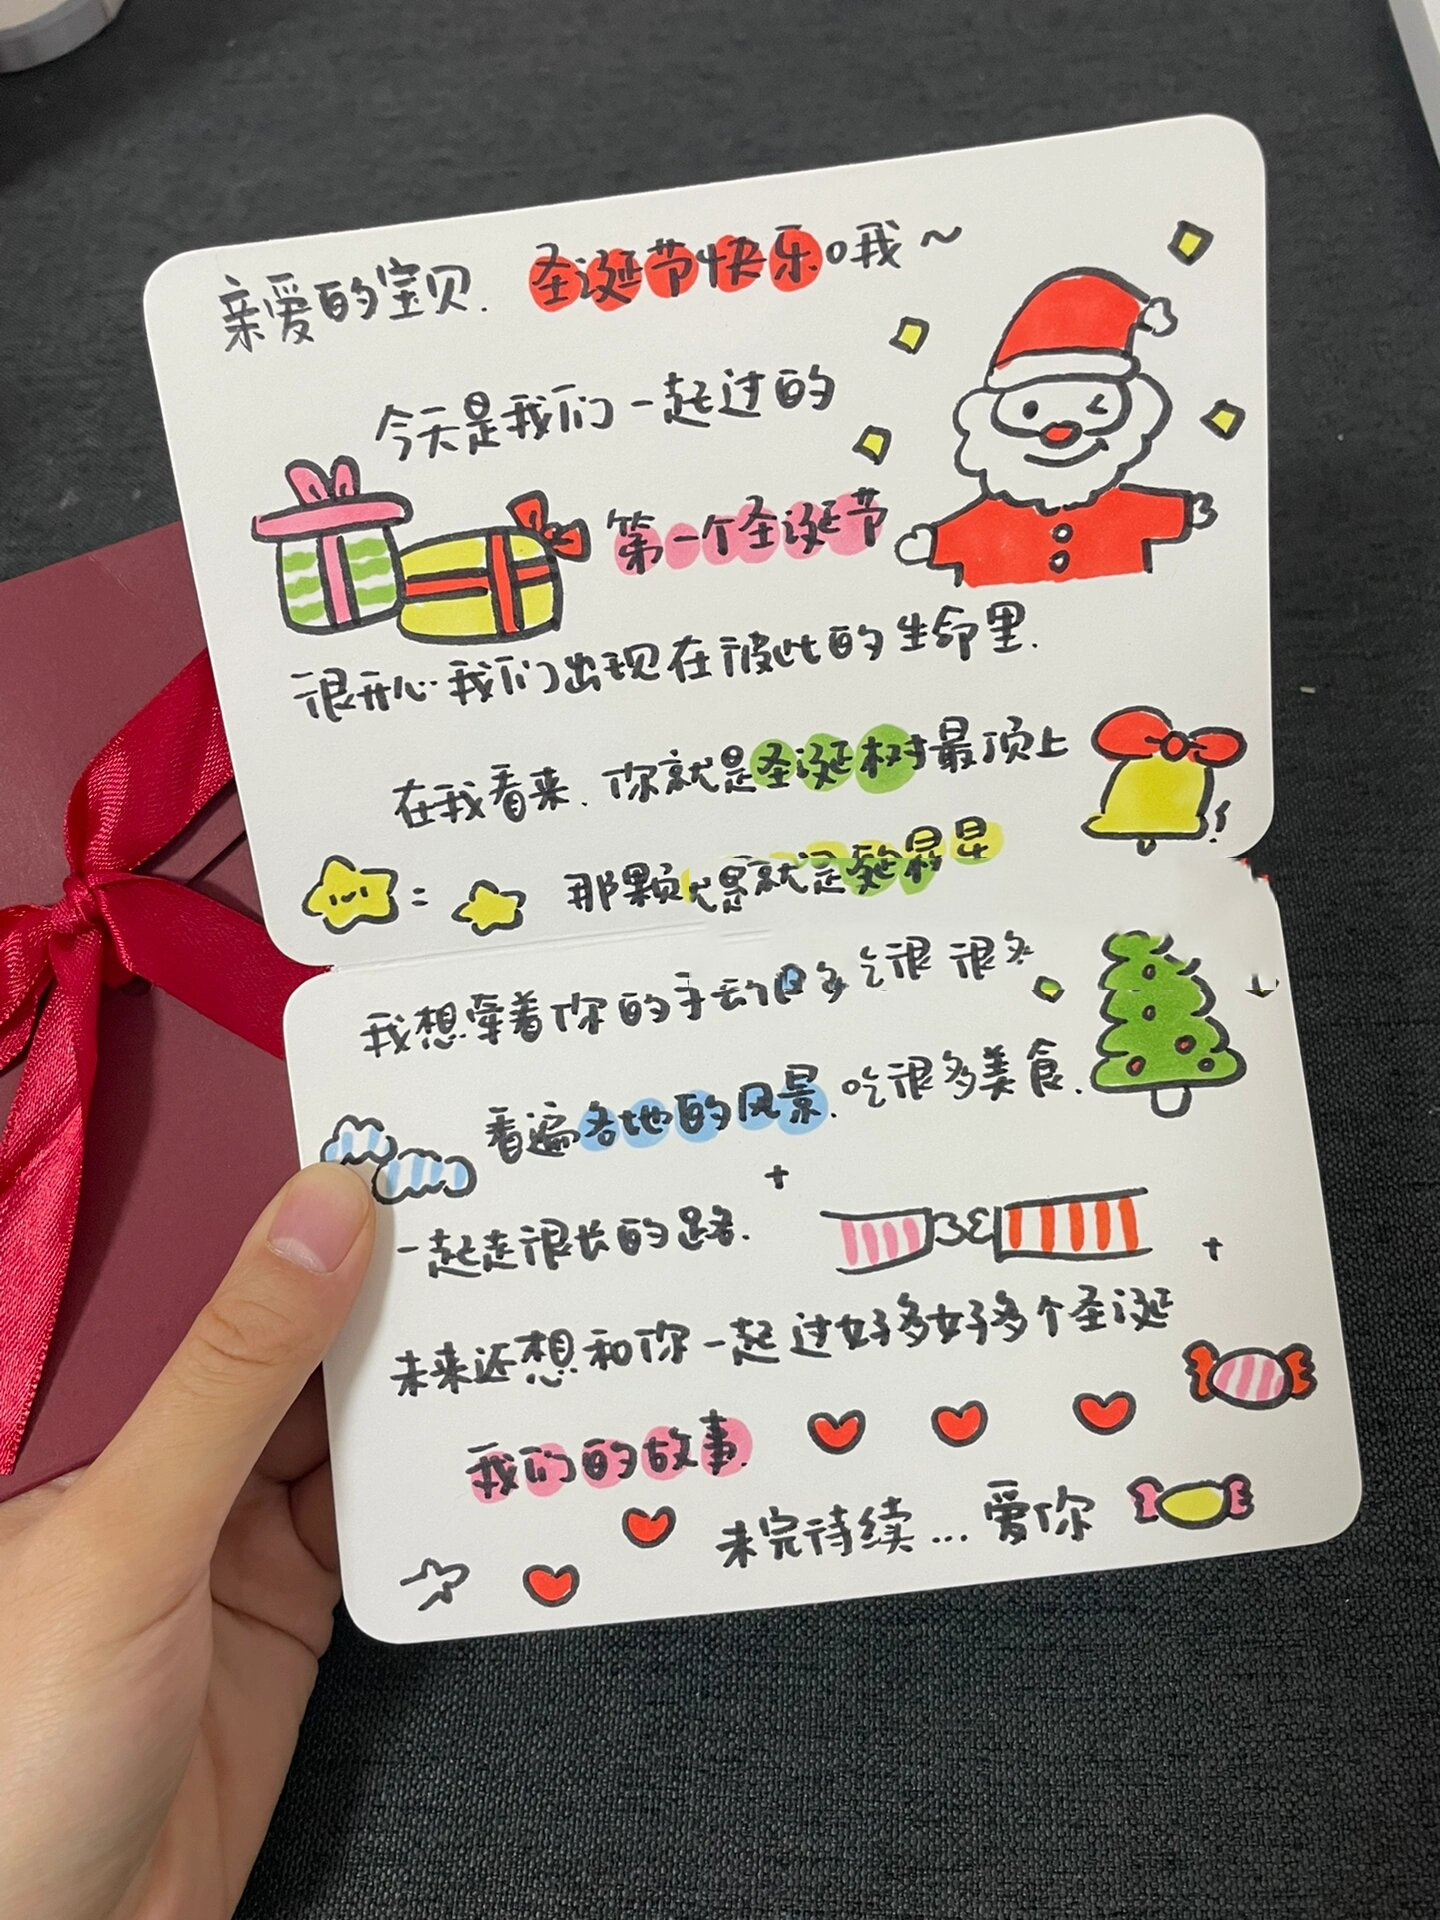 亲爱的宝贝. 圣诞节快乐哦~
今天是我们一起过的
第一个圣诞节
很开心我们出现在彼此的生命里.
在我看来. 你就是圣诞树最顶上
= 那颗
我想牵着你的手 很
看遍各地的风景. 吃很多美食.
一起走很长的路.
未来还想和你一起过好多好多个圣诞
我们的故事.
未完待续... 爱你